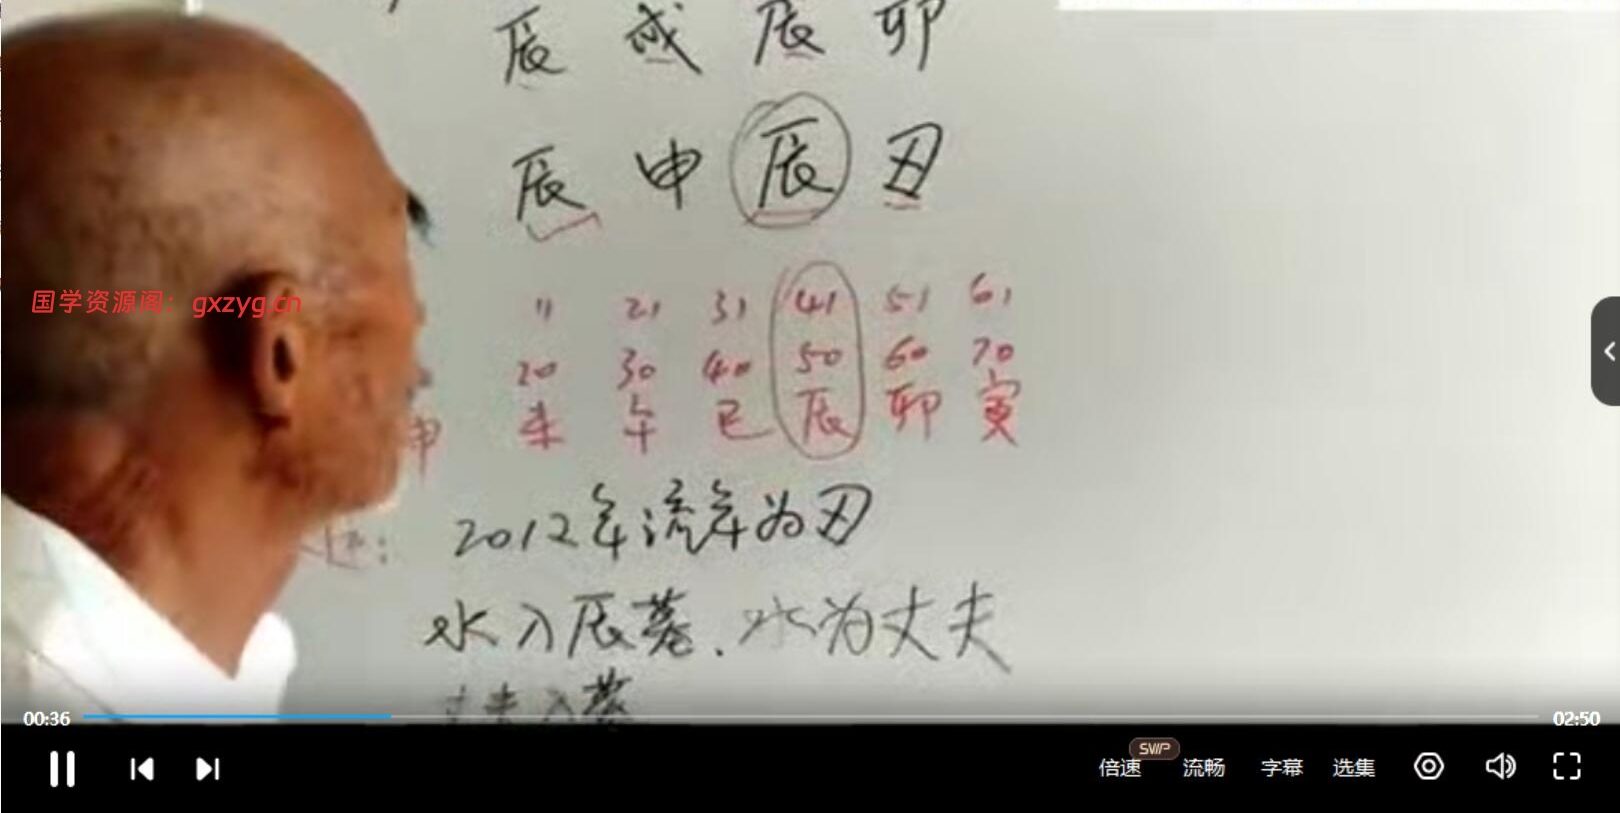 辰 戌 辰 卯
辰 申 辰 丑
11 21 31 41 51 61
20 30 40 50 60 70
申 未 午 巳 辰 卯 寅
国学资源阁：gxzyg.cn
运：
2012年流年为丑
水入辰墓．水为丈夫
丈夫入墓
00:36 02:50
倍速 SVIP 流畅 字幕 选集